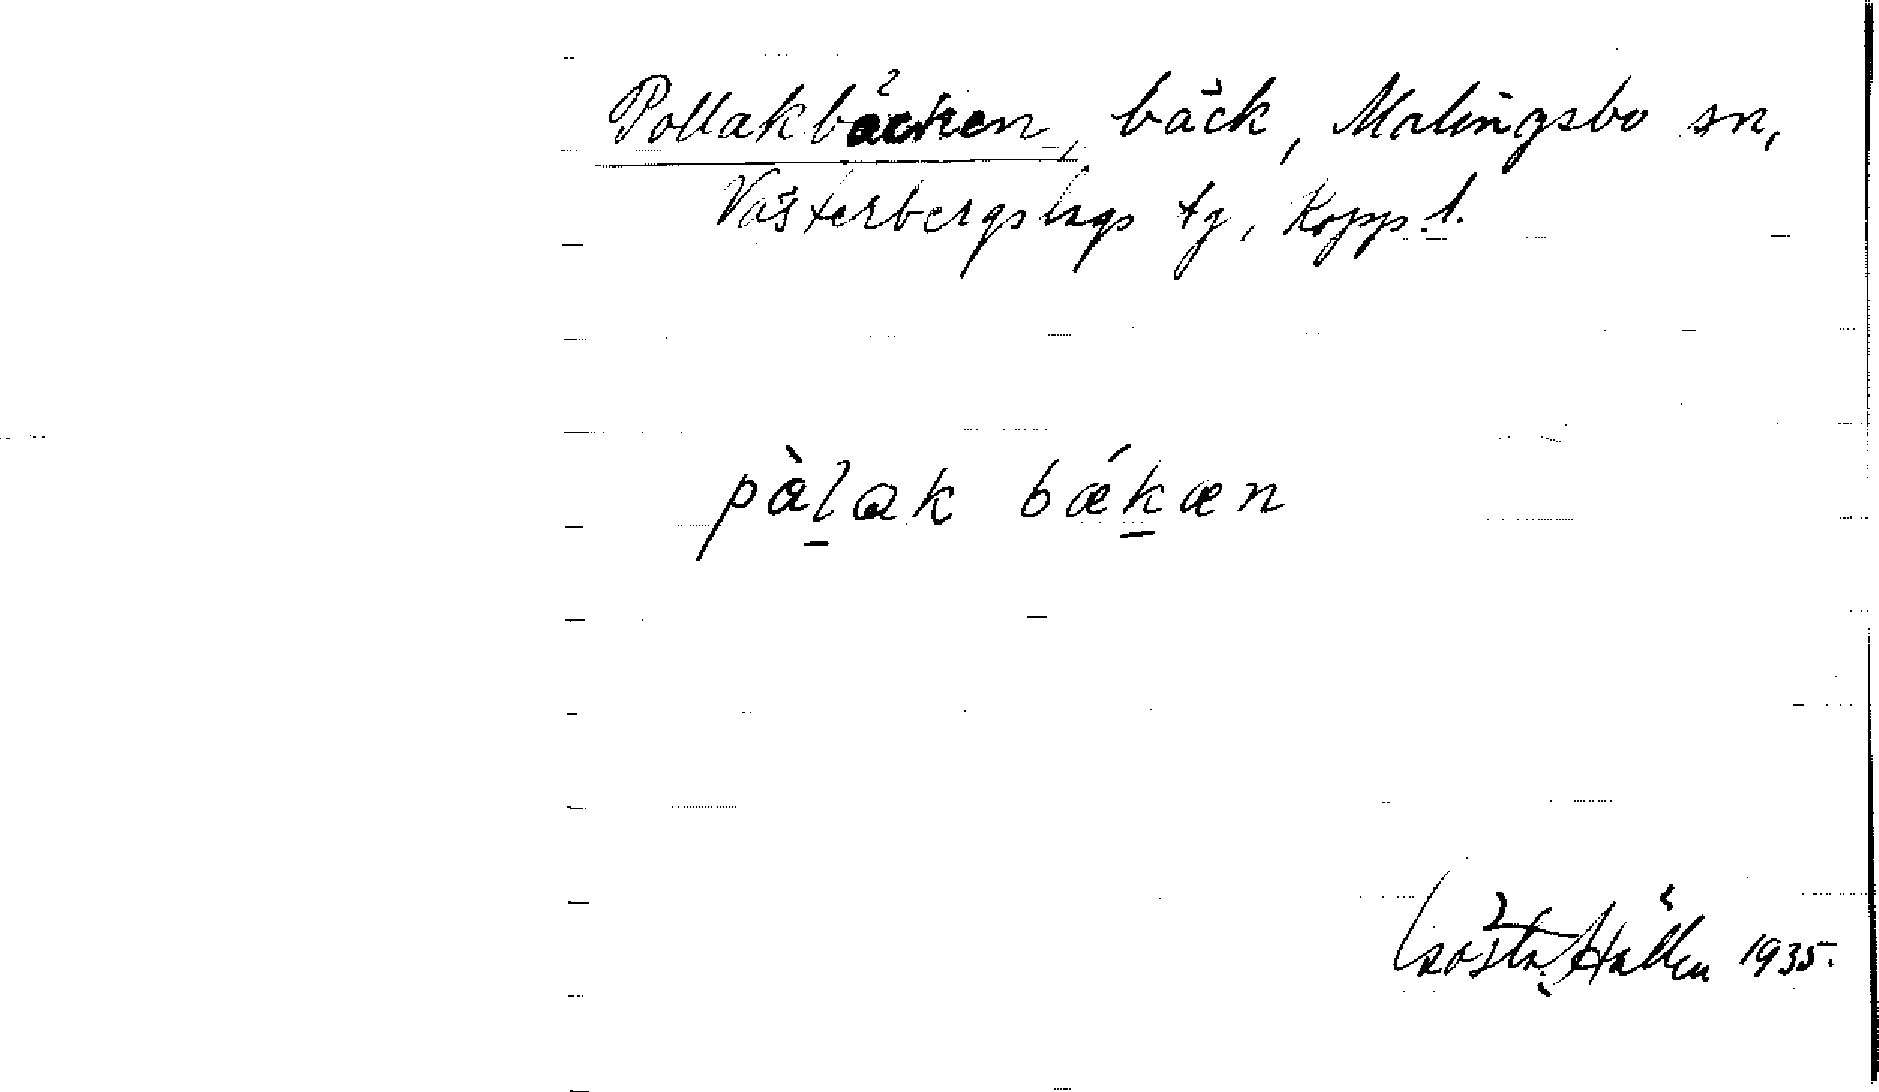 Pollakbäcken, bäck, Malingsbo sn,
Västerbergslags tg, Kopp. l.
pàl̠ak bǽk̠æn
Gösta Hällen 1935.